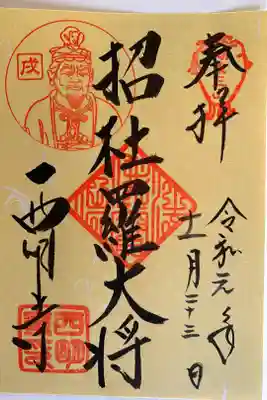 奉拝
令和元年
十一月二十三日
招杜羅大将
西明寺
戌